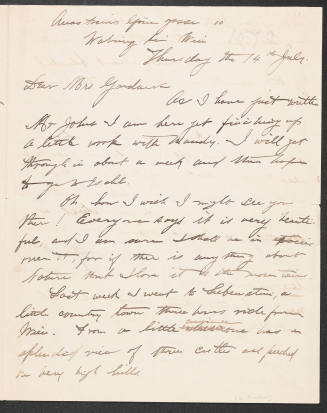 Währing bei Wien
Thursday the 14th July.
Dear Mrs Gardner
As I have just written
Mr Johns I am here yet finishing up
a little work with Mandy. I will get
through in about a week and then hope
to go to Ischl.
Oh, how I wish I might see you
there! Everyone says it is very beauti-
ful, and I am sure I shall be in
over it, for if there is anything about
Nature that I love it is the mountains
Last week I went to Liebenstein, a
little country town three hours ride from
Wien. From a little one has a
splendid view of three castles all perched
on very high hills